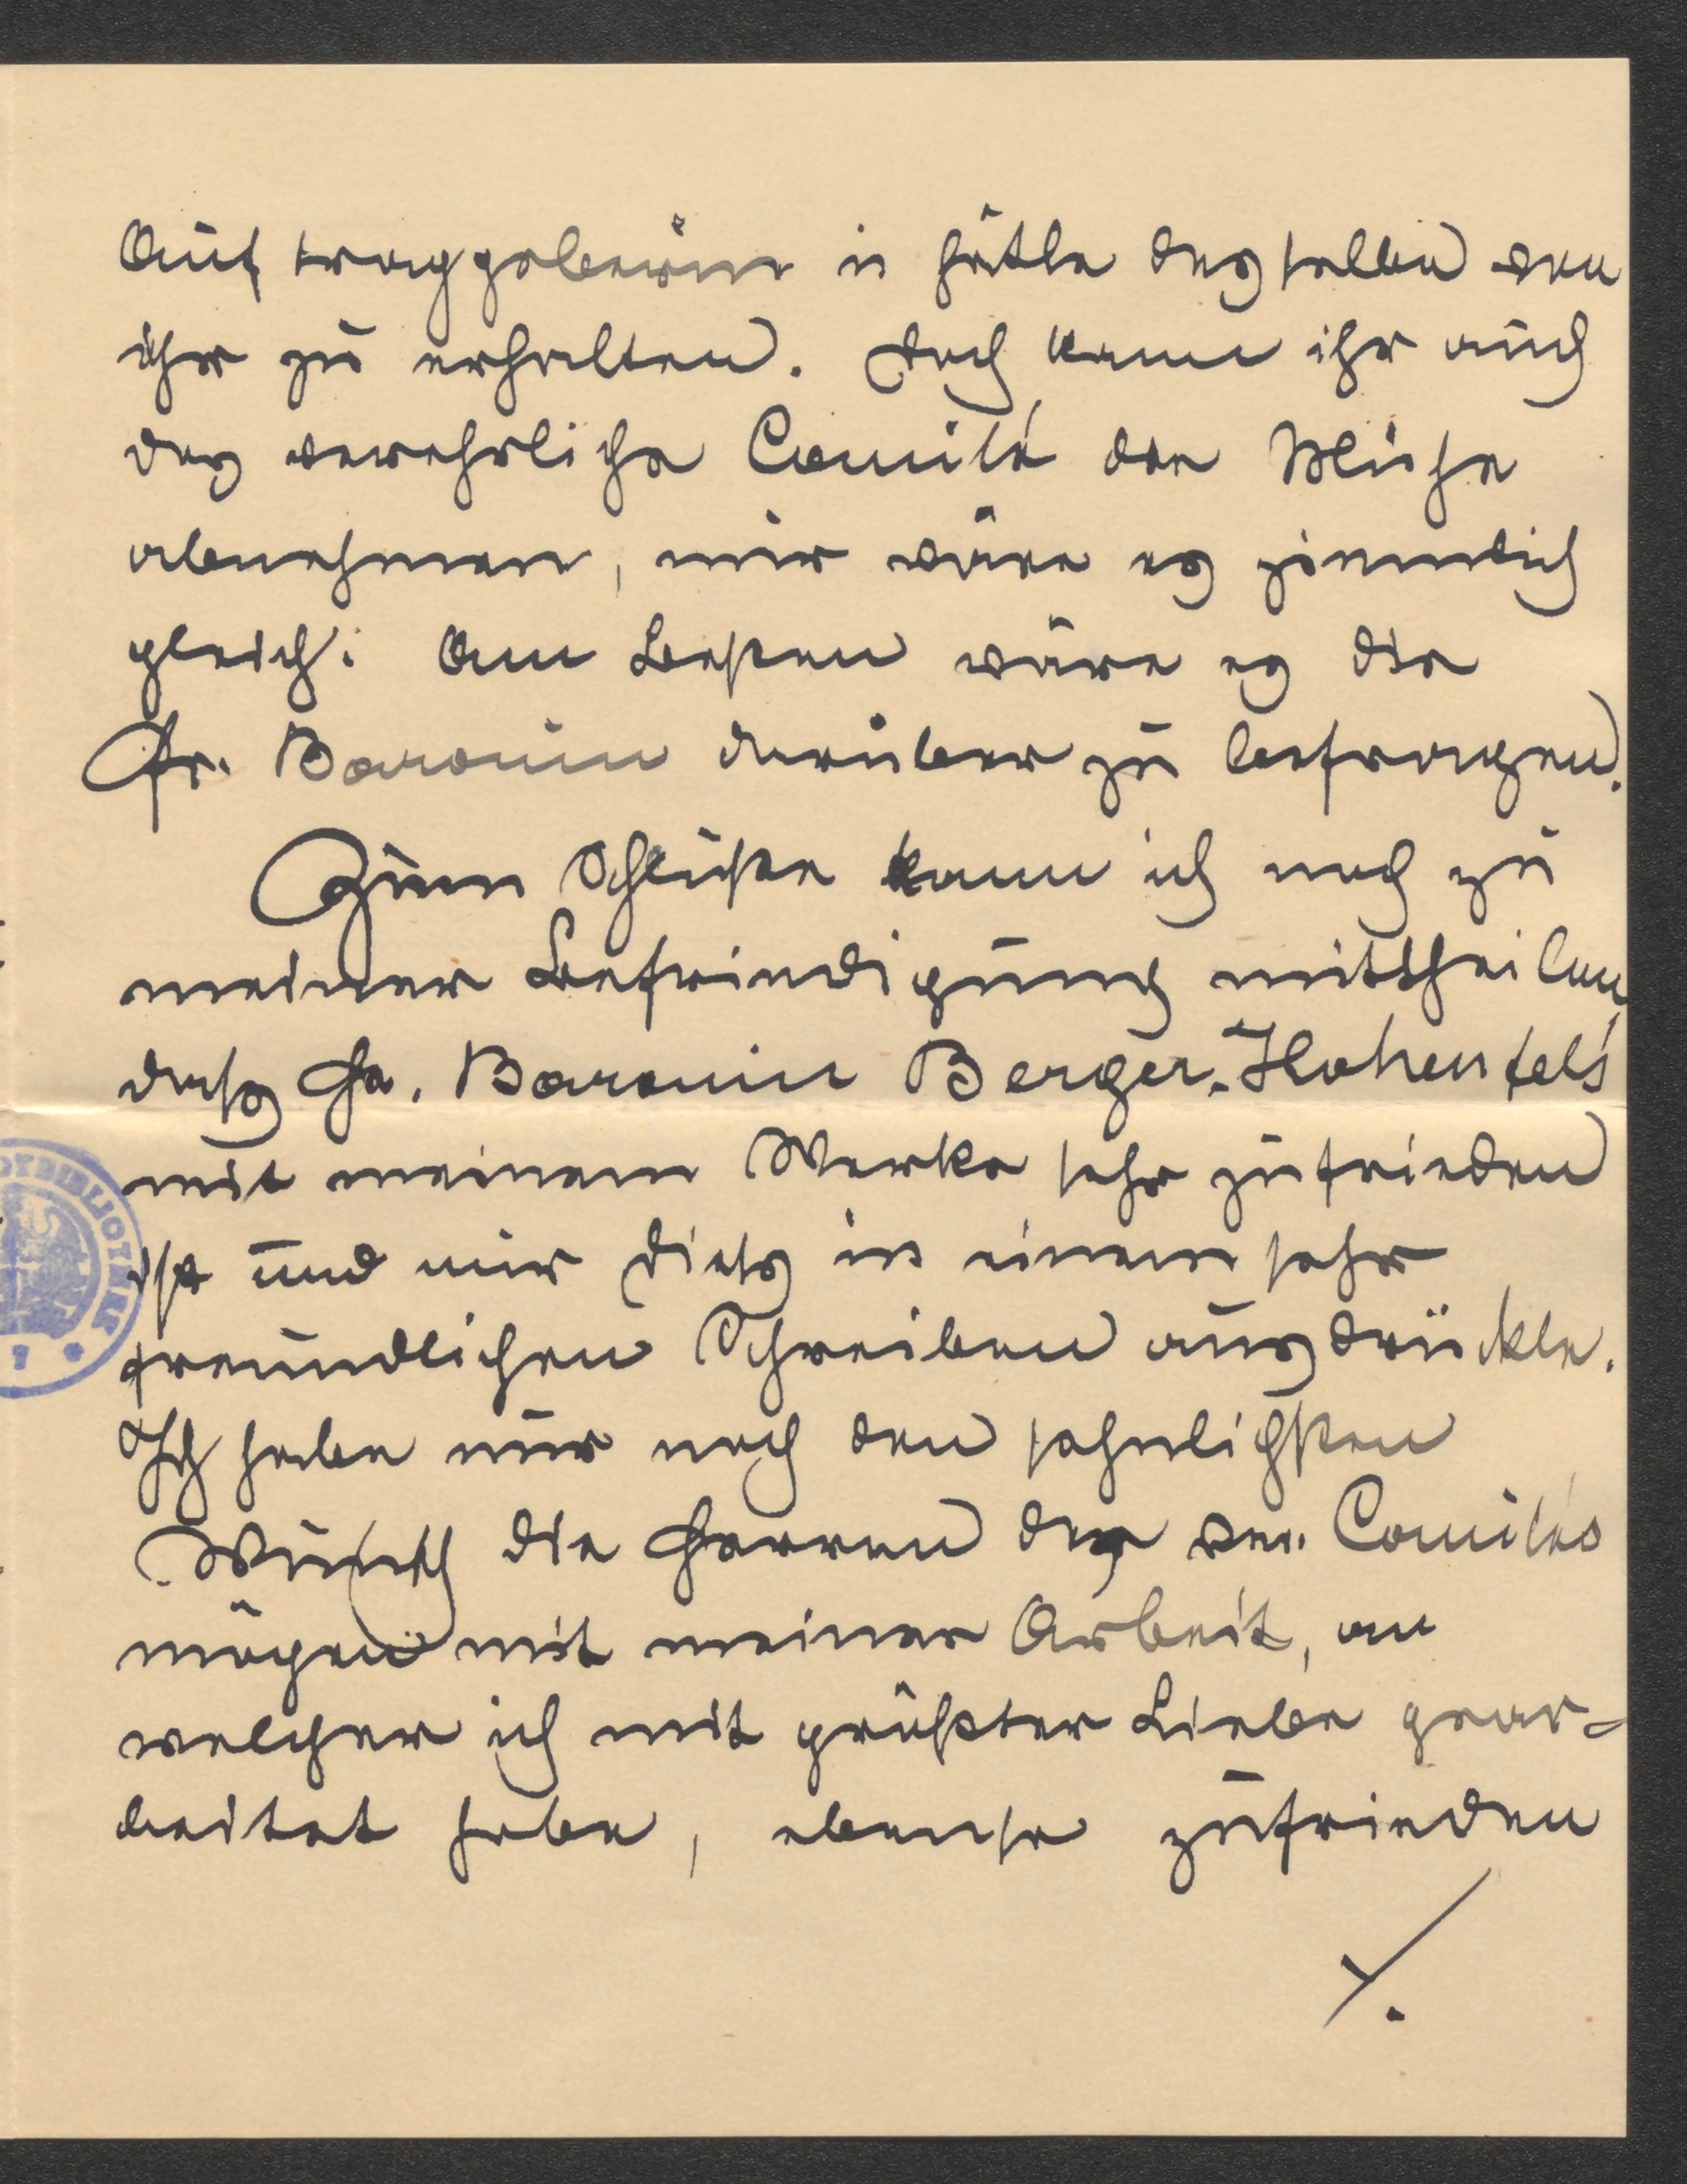 Auftraggeberin u hätte desselbe von
ihr zu erhalten. Doch kann ihr auch
das verehrliche Comité die Mühe
abnehmen, mir wäre es ziemlich
gleich. Am Besten wäre es die
Fr. Baronin darüber zu befragen.
Zum Schluße kann ich noch zu
meiner Befriedigung mittheilen,
daß Fr. Baronin Berger-Hohenfels
mit meinem Werke sehr zufrieden
ist und mir dieß in einem sehr
freundlichen Schreiben ausdrückte.
Ich habe nur noch den sehnlichsten
Wunsch die Herren des ver. Comités
mögen mit meiner Arbeit, an
welcher ich mit größter Liebe gear-
beitet habe, ebenso zufrieden
./.